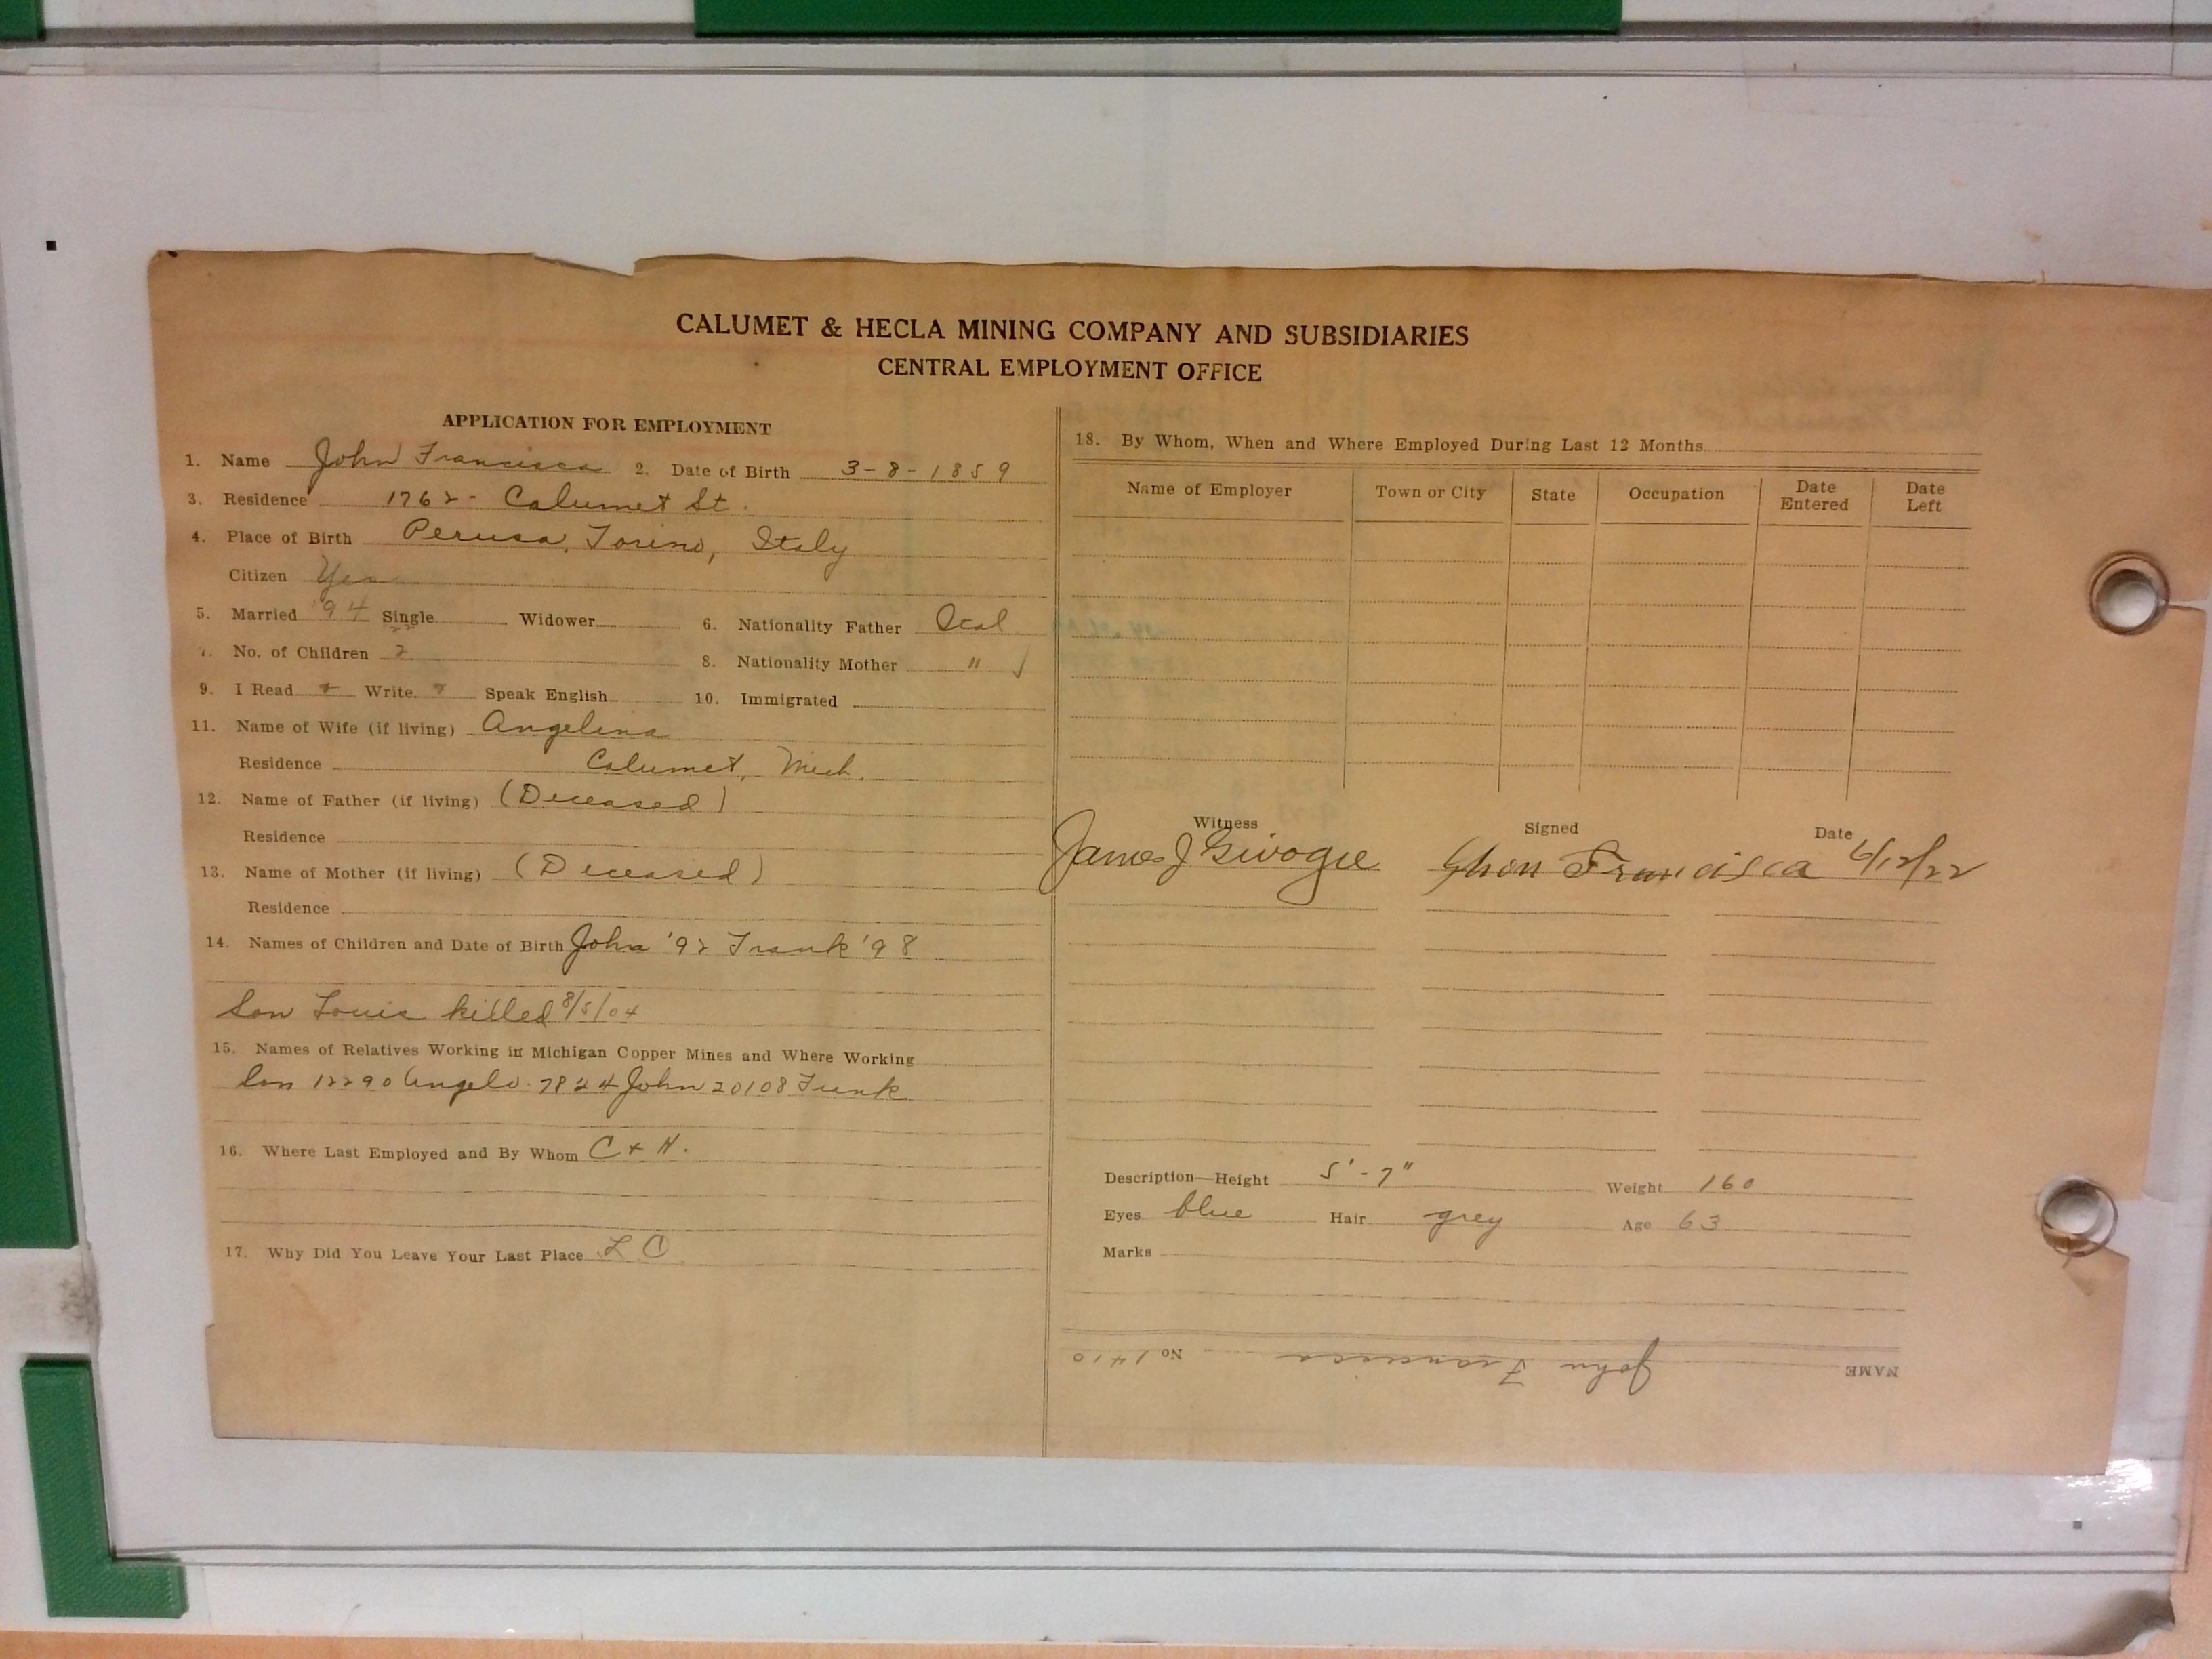 CALUMET & HECLA MINING COMPANY AND SUBSIDIARIES
CENTRAL EMPLOYMENT OFFICE
APPLICATION FOR EMPLOYMENT
1. Name John Francisca 2. Date of Birth 3-8-1859
3. Residence 1762- Calumet St.
4. Place of Birth Perusa, Torino, Italy
Citizen Yes
5. Married '94 Single Widower 6. Nationality Father Ital
7. No. of Children 2 8. Nationality Mother "
9. I Read Write Speak English 10. Immigrated
11. Name of Wife (if living) Angelina
Residence Calumet, Mich.
12. Name of Father (if living) (Deceased)
Residence
13. Name of Mother (if living) (Deceased)
Residence
14. Names of Children and Date of Birth John '92 Frank '98
Son Louis killed 8/5/04
15. Names of Relatives Working in Michigan Copper Mines and Where Working
Son 12290 Angelo. 7824 John 20108 Frank
16. Where Last Employed and By Whom C + H.
17. Why Did You Leave Your Last Place L C
18. By Whom, When and Where Employed During Last 12 Months
Name of Employer Town or City State Occupation Date Entered Date Left
Witness Signed Date
James J Givogie Ghon Francisca 6/12/22
Description—Height 5'-7" Weight 160
Eyes blue Hair grey Age 63
Marks
NAME John Francisca No 1410